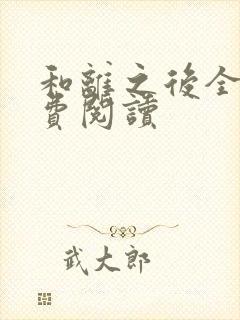 和離之後全
費閱讀
武大郎